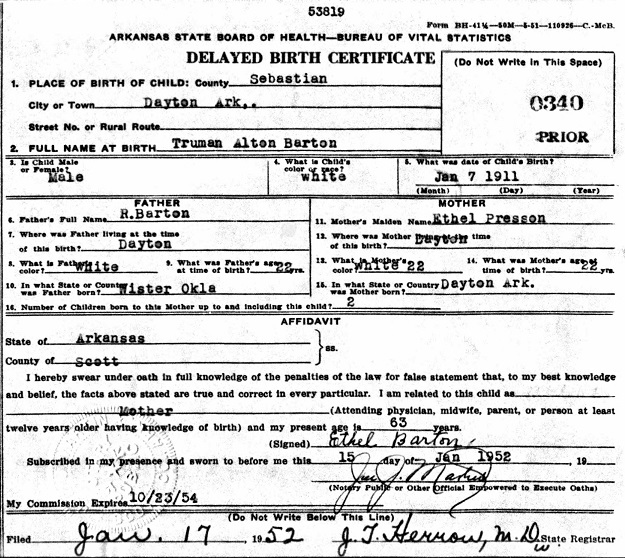 53819
Form BH-41½—50M—5-51—110926—C.-McB.
ARKANSAS STATE BOARD OF HEALTH—BUREAU OF VITAL STATISTICS
DELAYED BIRTH CERTIFICATE
(Do Not Write in This Space)
0340
PRIOR
1. PLACE OF BIRTH OF CHILD: County Sebastian
City or Town Dayton Ark..
Street No. or Rural Route
2. FULL NAME AT BIRTH Truman Alton Barton
3. Is Child Male or Female? Male
4. What is Child's color or race? white
5. What was date of Child's Birth? Jan 7 1911
(Month) (Day) (Year)
FATHER
6. Father's Full Name R.Barton
7. Where was Father living at the time of this birth? Dayton
8. What is Father's color? White
9. What was Father's age at time of birth? 22 yrs.
10. In what State or Country was Father born? Wister Okla
MOTHER
11. Mother's Maiden Name Ethel Presson
12. Where was Mother living at the time of this birth? Dayton
13. What is Mother's color? White 22
14. What was Mother's age at time of birth? 22 yrs.
15. In what State or Country was Mother born? Dayton Ark.
16. Number of Children born to this Mother up to and including this child? 2
AFFIDAVIT
State of Arkansas
County of Scott
} ss.
I hereby swear under oath in full knowledge of the penalties of the law for false statement that, to my best knowledge
and belief, the facts above stated are true and correct in every particular. I am related to this child as
Mother (Attending physician, midwife, parent, or person at least
twelve years older having knowledge of birth) and my present age is 63 years.
(Signed) Ethel Barton
Subscribed in my presence and sworn to before me this 15 day of Jan 1952, 19
(Notary Public or Other Official Empowered to Execute Oaths)
My Commission Expires 10/23/54
(Do Not Write Below This Line)
Filed Jan. 17 1952 J. T. Herron, M.D. State Registrar